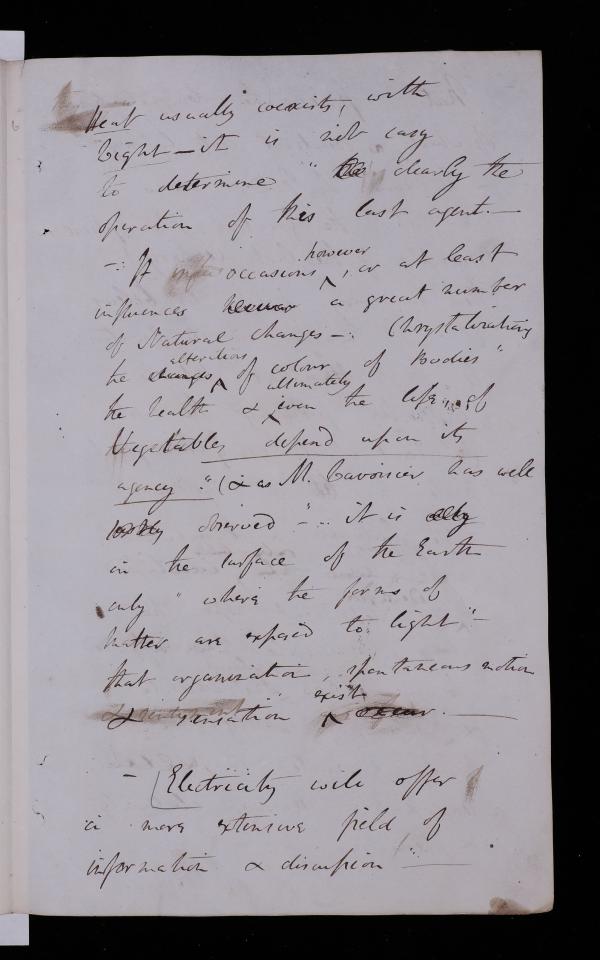 Heat usually coexists, with
Light — it is not easy
to determine " clearly the
operation of this last agent. —
— It occasions however, or at least
influences a great number
of Natural changes —. Chrystalization,
the alterations of colour of Bodies"
the health & even ultimately the life of
Vegetables depend upon its
agency ". (& as M. Lavoisier has well
observed — ".. it is
in the surface of the Earth
only " where the forms of
matter are exposed to light " —
that organization, spontaneous motion
& sensation exist. —
— [Electricity will offer
a more extensive field of
information & discussion " —